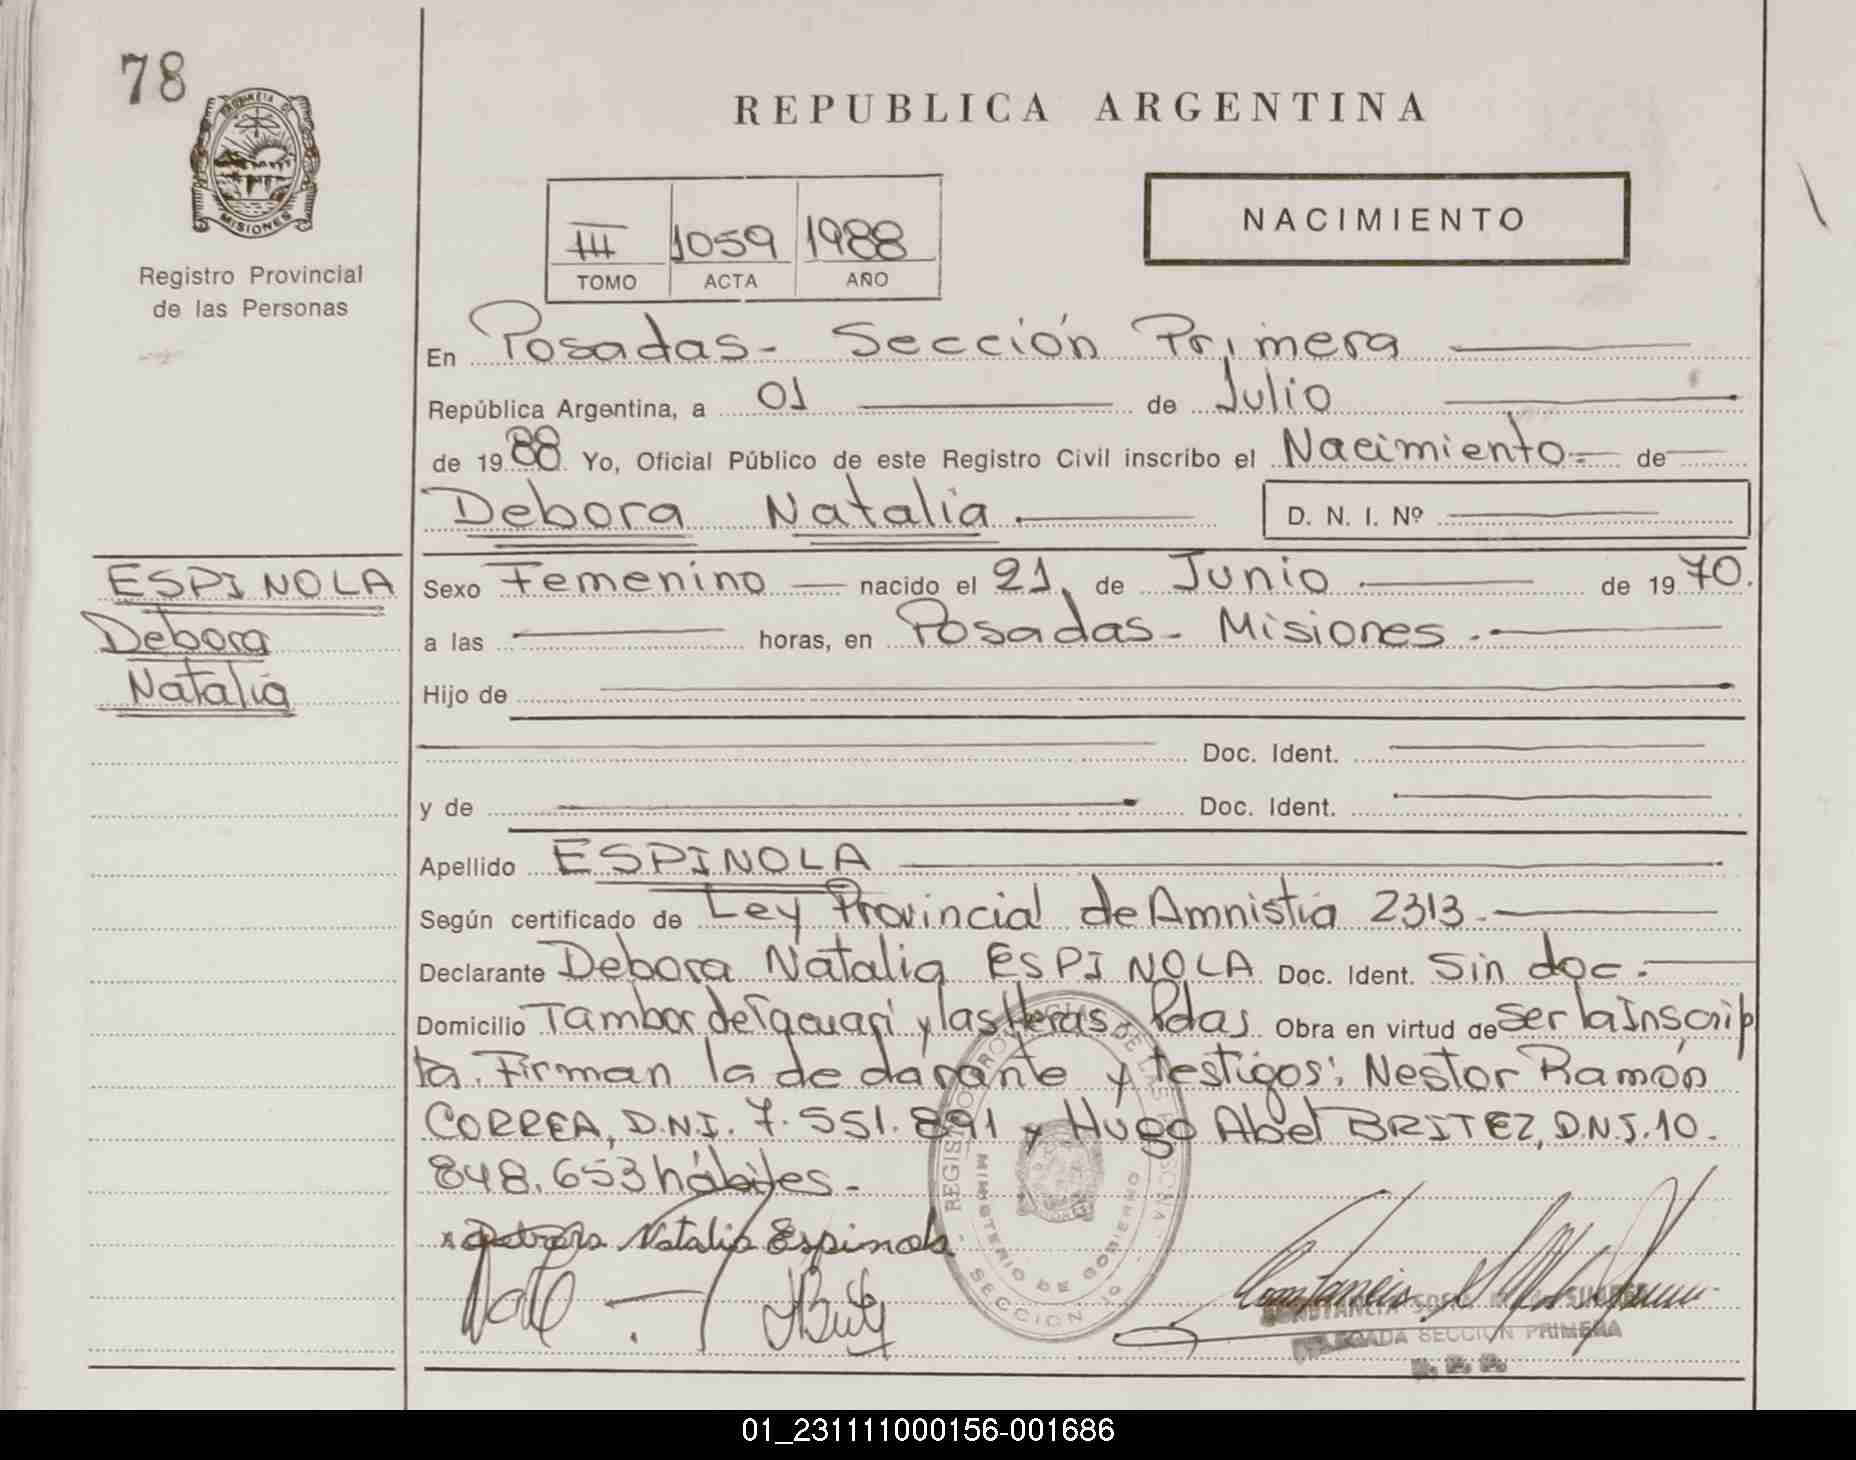 78
PROVINCIA DE
MISIONES
Registro Provincial
de las Personas
REPUBLICA ARGENTINA
III 1059 1988
TOMO ACTA AÑO
NACIMIENTO
En Posadas - Sección Primera
República Argentina, a 01 de Julio
de 1988 Yo, Oficial Público de este Registro Civil inscribo el Nacimiento.- de
Debora Natalia D. N. I. Nº
ESPINOLA
Debora
Natalia
Sexo Femenino nacido el 21 de Junio de 1970.
a las horas, en Posadas - Misiones.-
Hijo de
Doc. Ident.
y de Doc. Ident.
Apellido ESPINOLA
Según certificado de Ley Provincial de Amnistia 2313.-
Declarante Debora Natalia ESPINOLA Doc. Ident. Sin doc.-
Domicilio Tambor de Tacuari y las Heras. Pdas. Obra en virtud de ser la Inscrip
ta. Firman la declarante y testigos: Nestor Ramón
CORREA, D.N.I. 7.551.891 y Hugo Abel BRITEZ, D.N.I. 10.
848.653 hábiles.-
x Debora Natalia Espinola
REGISTRO PROVINCIAL DE LAS PERSONAS
MINISTERIO DE GOBIERNO
SECCION 1º
DELEGADA SECCION PRIMERA
R. P. P.
01_231111000156-001686